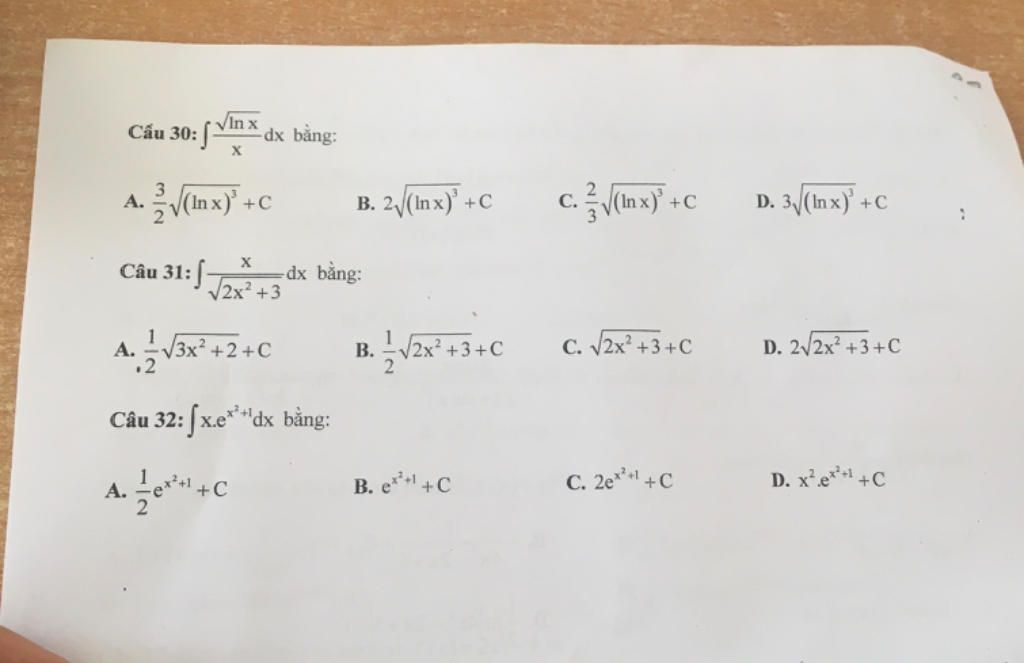 Câu 30: ∫ √(ln x)/x dx bằng:
A. 3/2 √((ln x)³) + C B. 2√((ln x)³) + C C. 2/3 √((ln x)³) + C D. 3√((ln x)³) + C
Câu 31: ∫ x/√(2x² + 3) dx bằng:
A. 1/2 √(3x² + 2) + C B. 1/2 √(2x² + 3) + C C. √(2x² + 3) + C D. 2√(2x² + 3) + C
Câu 32: ∫ x.e^(x²+1) dx bằng:
A. 1/2 e^(x²+1) + C B. e^(x²+1) + C C. 2e^(x²+1) + C D. x².e^(x²+1) + C